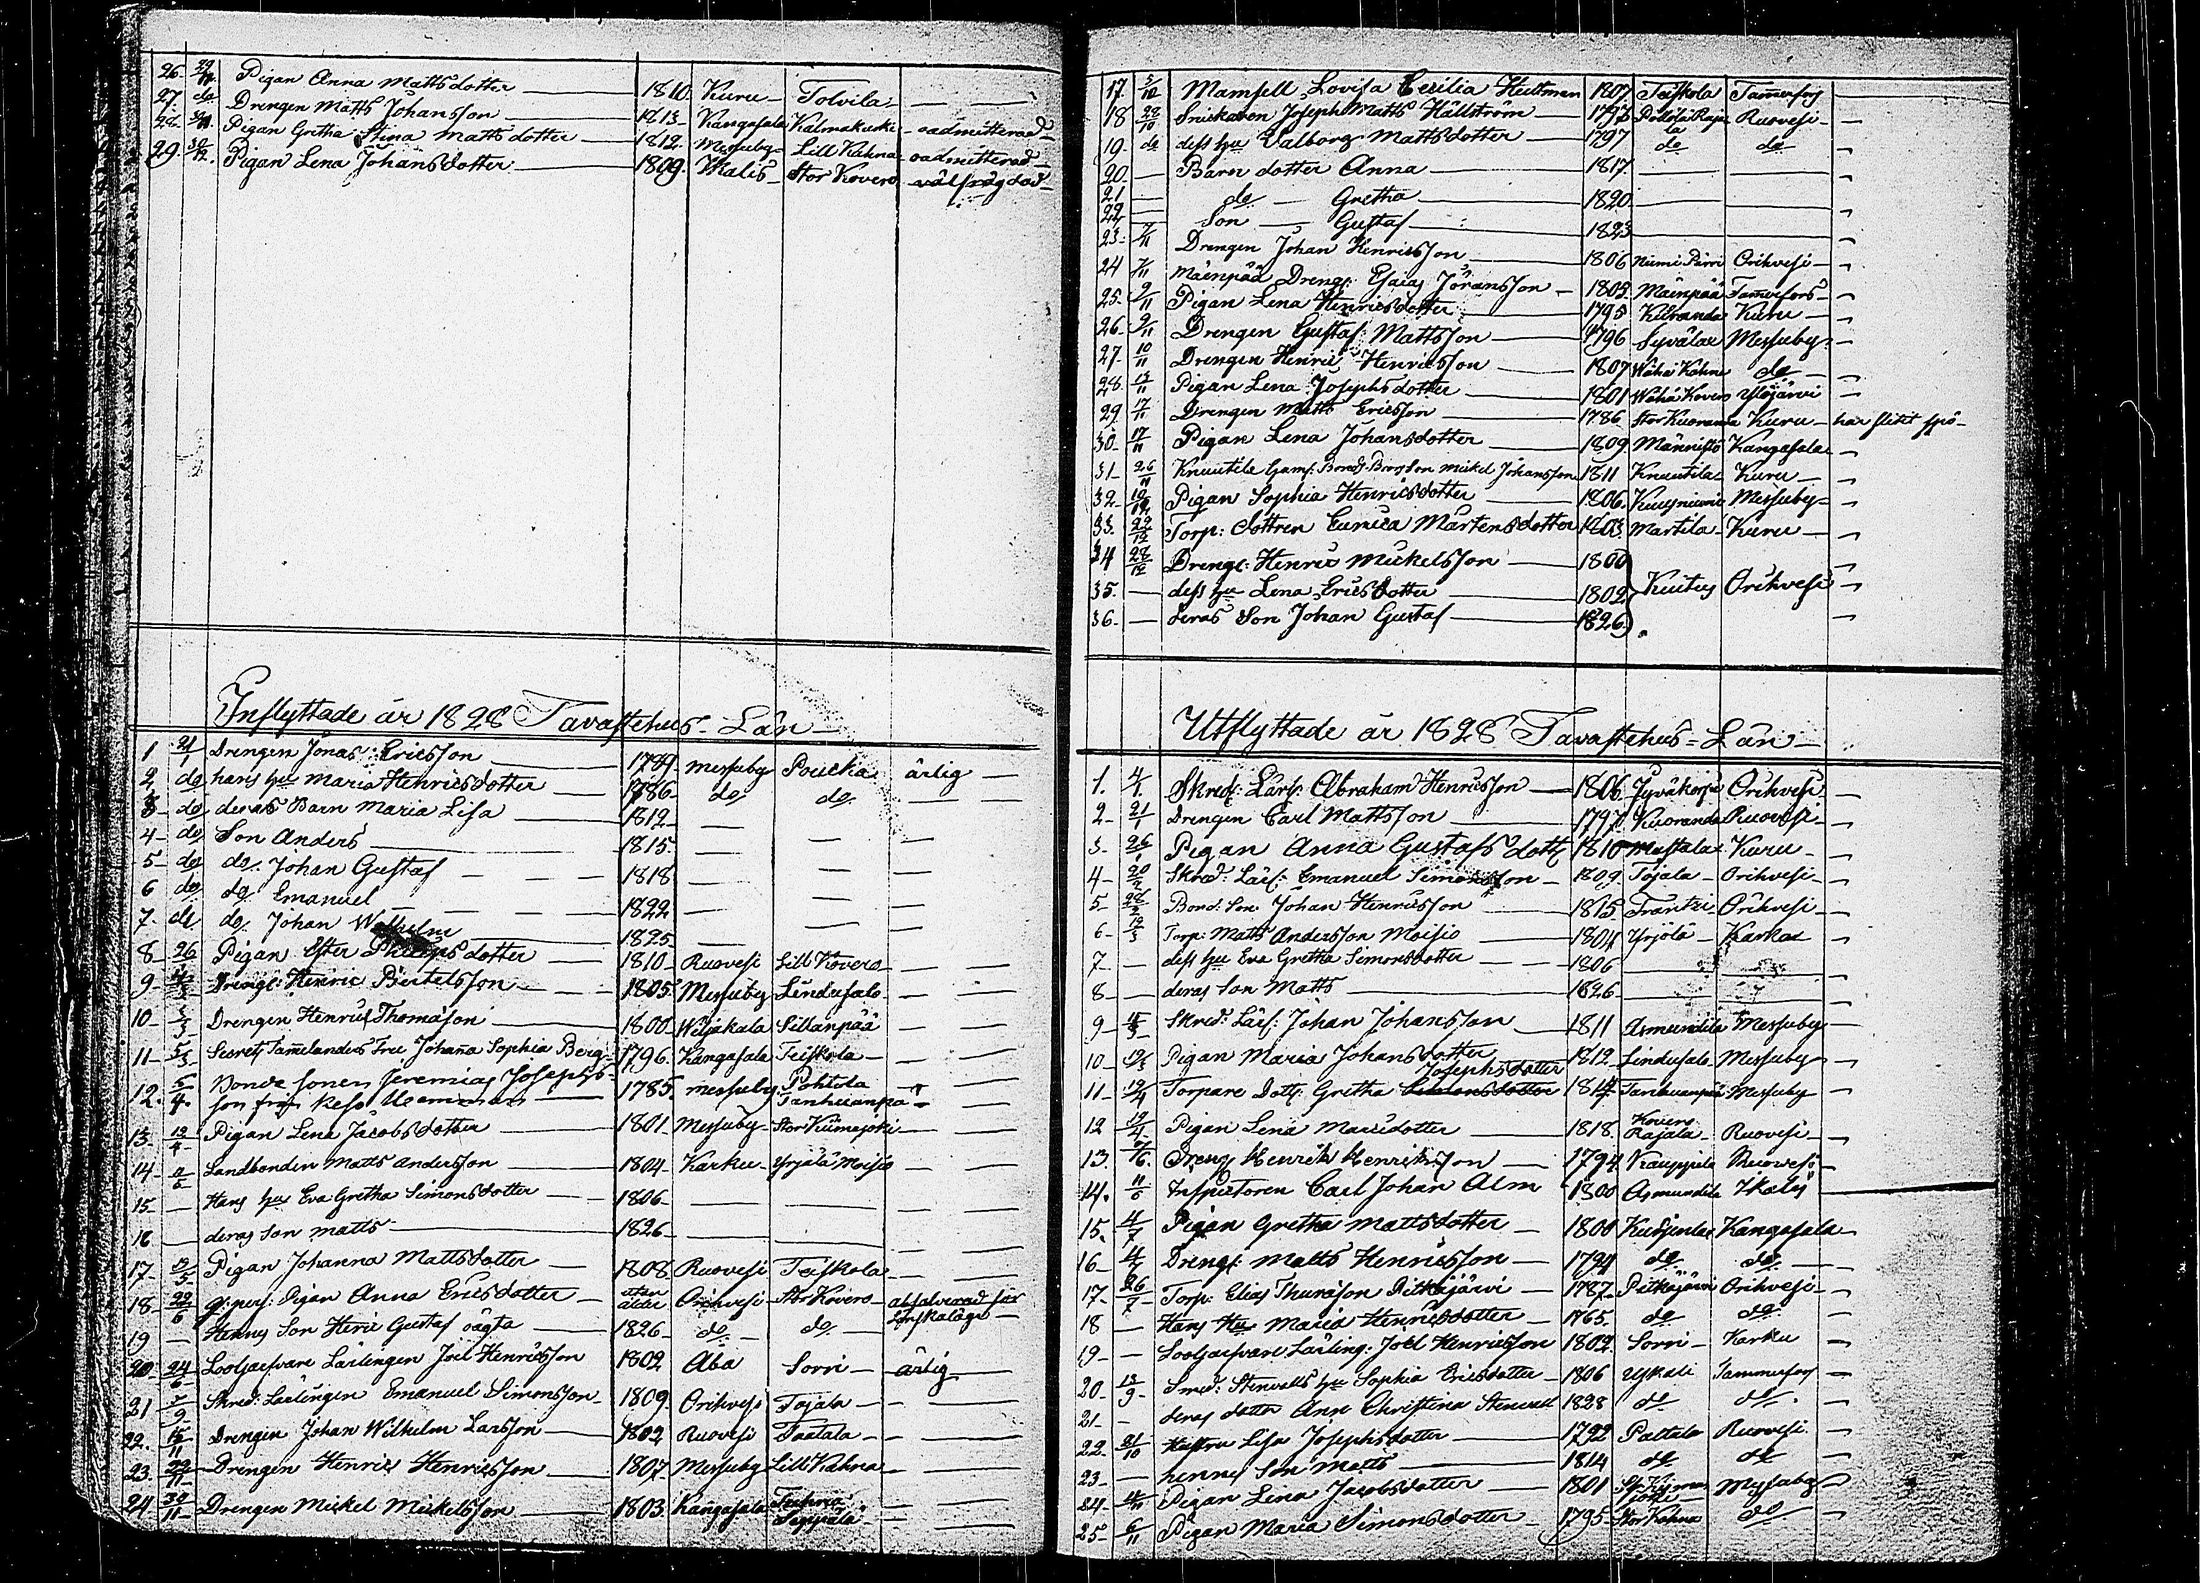 26. 29/11 Pigan Anna Mattsdotter 1810. Kuru Tolvila
27. do Drengen Matts Johansson 1813. Kangasala Kalmakurki oadmitterad
28. Pigan Gretha Stina Mattsdotter 1812. Messuby Lill Kahna oadmitterad
29. 30/12. Pigan Lena Johansdotter 1809. Ikalis Stor Kovero välfrägdad
Inflyttade år 1828 Tavastehus Län
1 21/1 Drengen Jonas Ericsson 1789. Messuby Poucka ärlig
2 do hans hu Maria Henricsdotter 1786 do do
3 do deras Barn Maria Lisa 1812
4 do Son Anders 1815
5 do do Johan Gustaf 1818
6 do do Emanuel 1822
7 do do Johan Wilhelm 1825
8 26 Pigan Ester Philipsdotter 1810 Ruovesi Lill Kovero
9 Drengen Henric Bertelsson 1805 Messuby Lindusalo
10 Drengen Henric Thomasson 1800 Wiljakala Sillanpää
11 5/3 Secret Tamelanders Fru Johana Sophia Berg 1796. Kangasala Teiskola
12. 5/4. Bonde sonen Jeremias Josephs- 1785. Messuby Pohtola
son från Keso Uramman Tanhuanpä
13 19/4 Pigan Lena Jacobsdotter 1801 Messuby Stor Kiimajoki
14 Landbonden Matts Andersson 1804 Karku Yrjälä Moisio
15 Hans hu Eva Gretha Simonsdotter 1806
16 deras son Matts 1826
17 19/5 Pigan Johanna Mattsdotter 1808 Ruovesi Teiskola
18 22/6 Pigan Anna Ericsdotter utan ålder Orihvesi Stor Kovero absolverad för
19 Hennes Son Henric Gustaf oägta 1826 do do Lönskaläge
20 24/6 Lootgarfvare Lärlingen Joel Henricsson 1802 Åbo Sorri ärlig
21 7/9 Skred: Lärlingen Emanuel Simonsson 1809 Orihvesi Tojala
22. 15/11 Drengen Johan Wilhelm Larsson 1802 Ruovesi Taatala
23. 29/11 Drengen Henric Henricsson 1807 Messuby Lill Kahna
24 30/11 Drengen Mickel Mickelsson 1803 Kangasala
17 3/10 Mamsell Lovisa Cecilia Hultman 1807 Teiskola Tammerfors
18 28/10 Snickaren Joseph Matts Hällström 1793 Ruovesi
19. do dess hu Valborg Mattsdotter 1797 do do
20. Barn dotter Anna 1817
21 do Gretha 1820
22 Son Gustaf 1823
23. 7/11 Drengen Johan Henricsson 1806 Niemi Pirri Orihvesi
24 7/11 Mäenpää Dreng: Esaias Jöransson 1803 Mäenpää Tammerfors
25. 9/11 Pigan Lena Henricsdotter 1795 Kuoranda Kuru
26. 9/11 Drengen Gustaf Mattsson 1796 Syvälax Messuby
27. 10/11 Drengen Henric Henricsson 1807 Wähä Kahna do
28. 13/11 Pigan Lena Josephsdotter 1801 Wähä Kovero Ylöjärvi
29. 17/11 Drengen Matts Ericsson 1786 Stor Kuoranda Kuru har slitit spö
30. 17/11 Pigan Lena Johansdotter 1809 Männistö Kangasala
31. 26/11 Knuutila Mickel Johansson 1811 Knuutila Kuru
32. 19/12 Pigan Sophia Henricsdotter 1806. Kuusniemi Messuby
33. 22/12 Torp: dottren Eurica Mårtensdotter 1803. Martila Kuru
34 28/12 Dreng: Henric Mickelsson 1800
35. dess hu Lena Ericsdotter 1802 Kuitus Orihvesi
36. deras Son Johan Gustaf 1826
Utflyttade år 1828 Tavastehus-Län
1. 4/1. Skred: Lärl: Abraham Henricsson 1806 Jyväkorpi Orihvesi
2. 21/1 Drengen Carl Mattsson 1797 Kuoranda Ruovesi
3. 26/1 Pigan Anna Gustafs dott 1810 Mustala Kuru
4. 20/2 Skred: Lärl: Emanuel Simonsson 1809. Tojala Orihvesi
5. Bond: Son Johan Henricsson 1815 Frantsi Orihvesi
6. 12/3 Torp: Matts Andersson Moisio 1804 Yrjölä Karku
7 dess hu Eva Gretha Simonsdotter 1806
8 deras Son Matts 1826
9 Skred: Lärl: Johan Johansson 1811 Asmundila Messuby
10 19/3 Pigan Maria Johansdotter 1812 Lindusalo Messuby
Josephsdotter
11 19/4 Torpare Dott: Gretha Simonsdotter 1814 Tanhuanpä Messuby
12 19/4 Pigan Lena Marcidotter 1818. Kovero Rajala Ruovesi
13. Dreng Henrik Henriksson 1794. Kauppila Ruovesi
14. 11/6 Inspectoren Carl Johan Alm 1800 Asmundila Ikalis
15. 4/7 Pigan Gretha Mattsdotter 1800 Kangasala
16 4/7 Dreng: Matts Henricsson 1794 do do
17 26/7 Torp: Elias Thurasson Pitkäjärvi 1787 Pitkäjärvi Orihvesi
18 Hans Hu Maria Henricsdotter 1765. do do
19 Lootgarfvare Lärling: Joel Henricsson 1802. Sorri Karku
20. 13/9 Smed: Stenvalls hu Sophia Ericsdotter 1806 Ylikali Tammerfors
21 deras dotter Ann Christina Stenvall 1828 do do
22. 21/10 Hustru Lisa Josephsdotter 1792 Paltala Ruovesi
23 hennes Son Matts 1814 do do
24 Pigan Lena Jacobsdotter 1801 St. Kiimajoki Messuby
25 6/11 Pigan Maria Simonsdotter 1795 Stor Kahna do